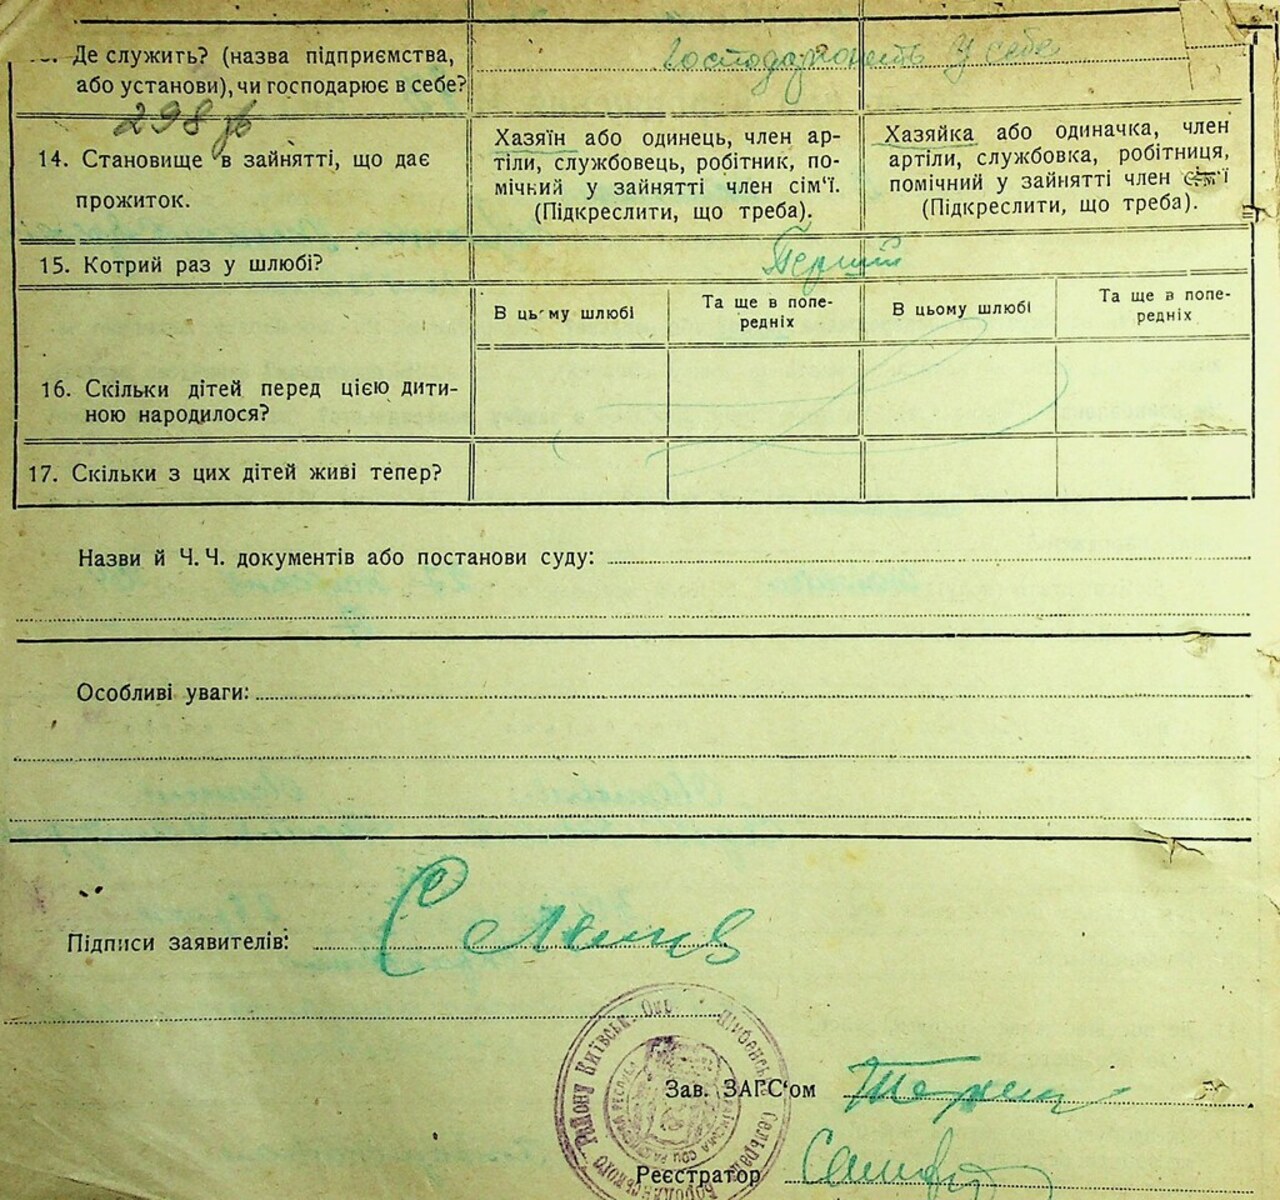 Де служить? (назва підприємства,
або установи), чи господарює в себе?
Господарюють у себе
298
14. Становище в зайнятті, що дає
прожиток.
Хазяїн або одинець, член ар-
тіли, службовець, робітник, по-
мічний у зайнятті член сім'ї.
(Підкреслити, що треба).
Хазяйка або одиначка, член
артіли, службовка, робітниця,
помічний у зайнятті член сім'ї
(Підкреслити, що треба).
15. Котрий раз у шлюбі?
Перший
В цьому шлюбі
Та ще в попе-
редніх
В цьому шлюбі
Та ще в попе-
редніх
16. Скільки дітей перед цією дити-
ною народилося?
17. Скільки з цих дітей живі тепер?
Назви й Ч. Ч. документів або постанови суду:
Особливі уваги:
Підписи заявителів:
Району Київськ. Окр.
Сельрада
Зав. ЗАГС'ом
Реєстратор